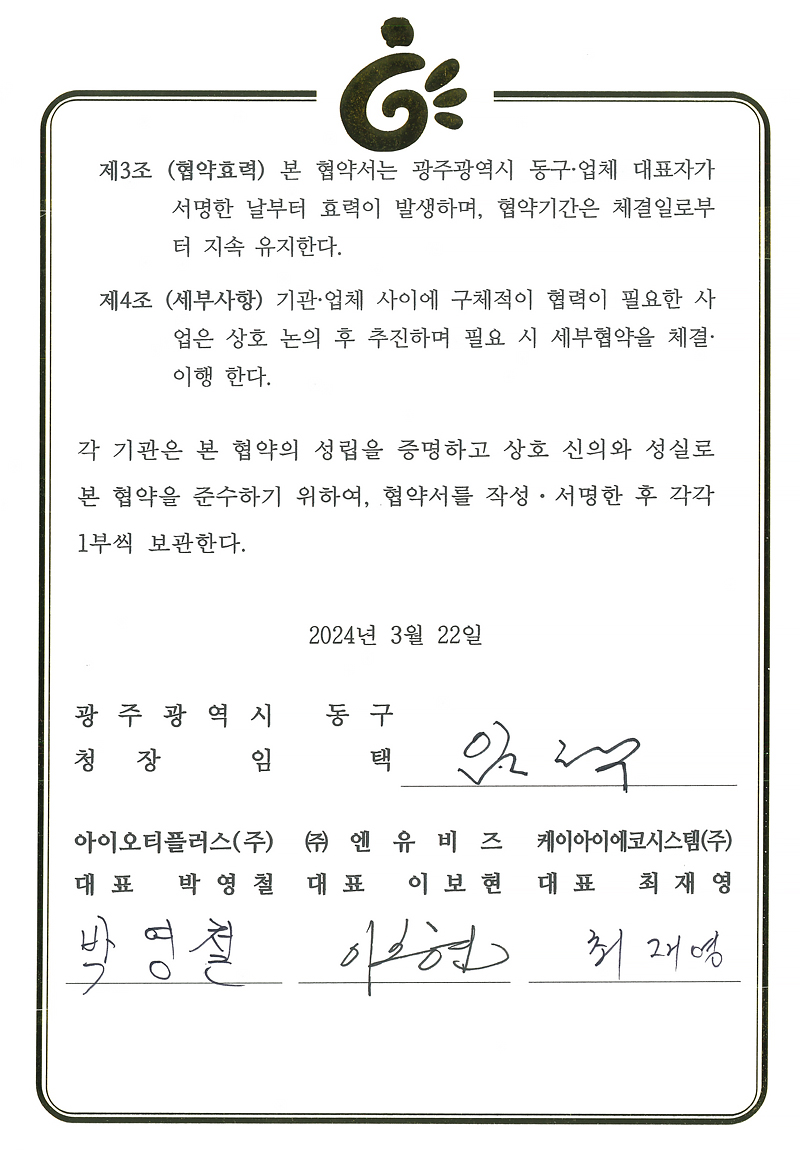 제3조 (협약효력) 본 협약서는 광주광역시 동구·업체 대표자가
서명한 날부터 효력이 발생하며, 협약기간은 체결일로부
터 지속 유지한다.
제4조 (세부사항) 기관·업체 사이에 구체적이 협력이 필요한 사
업은 상호 논의 후 추진하며 필요 시 세부협약을 체결·
이행 한다.
각 기관은 본 협약의 성립을 증명하고 상호 신의와 성실로
본 협약을 준수하기 위하여, 협약서를 작성·서명한 후 각각
1부씩 보관한다.
2024년 3월 22일
광주광역시 동구
청장 임택 임택
아이오티플러스(주) ㈜엔유비즈 케이아이에코시스템(주)
대표 박영철 대표 이보현 대표 최재영
박영철 이보현 최재영